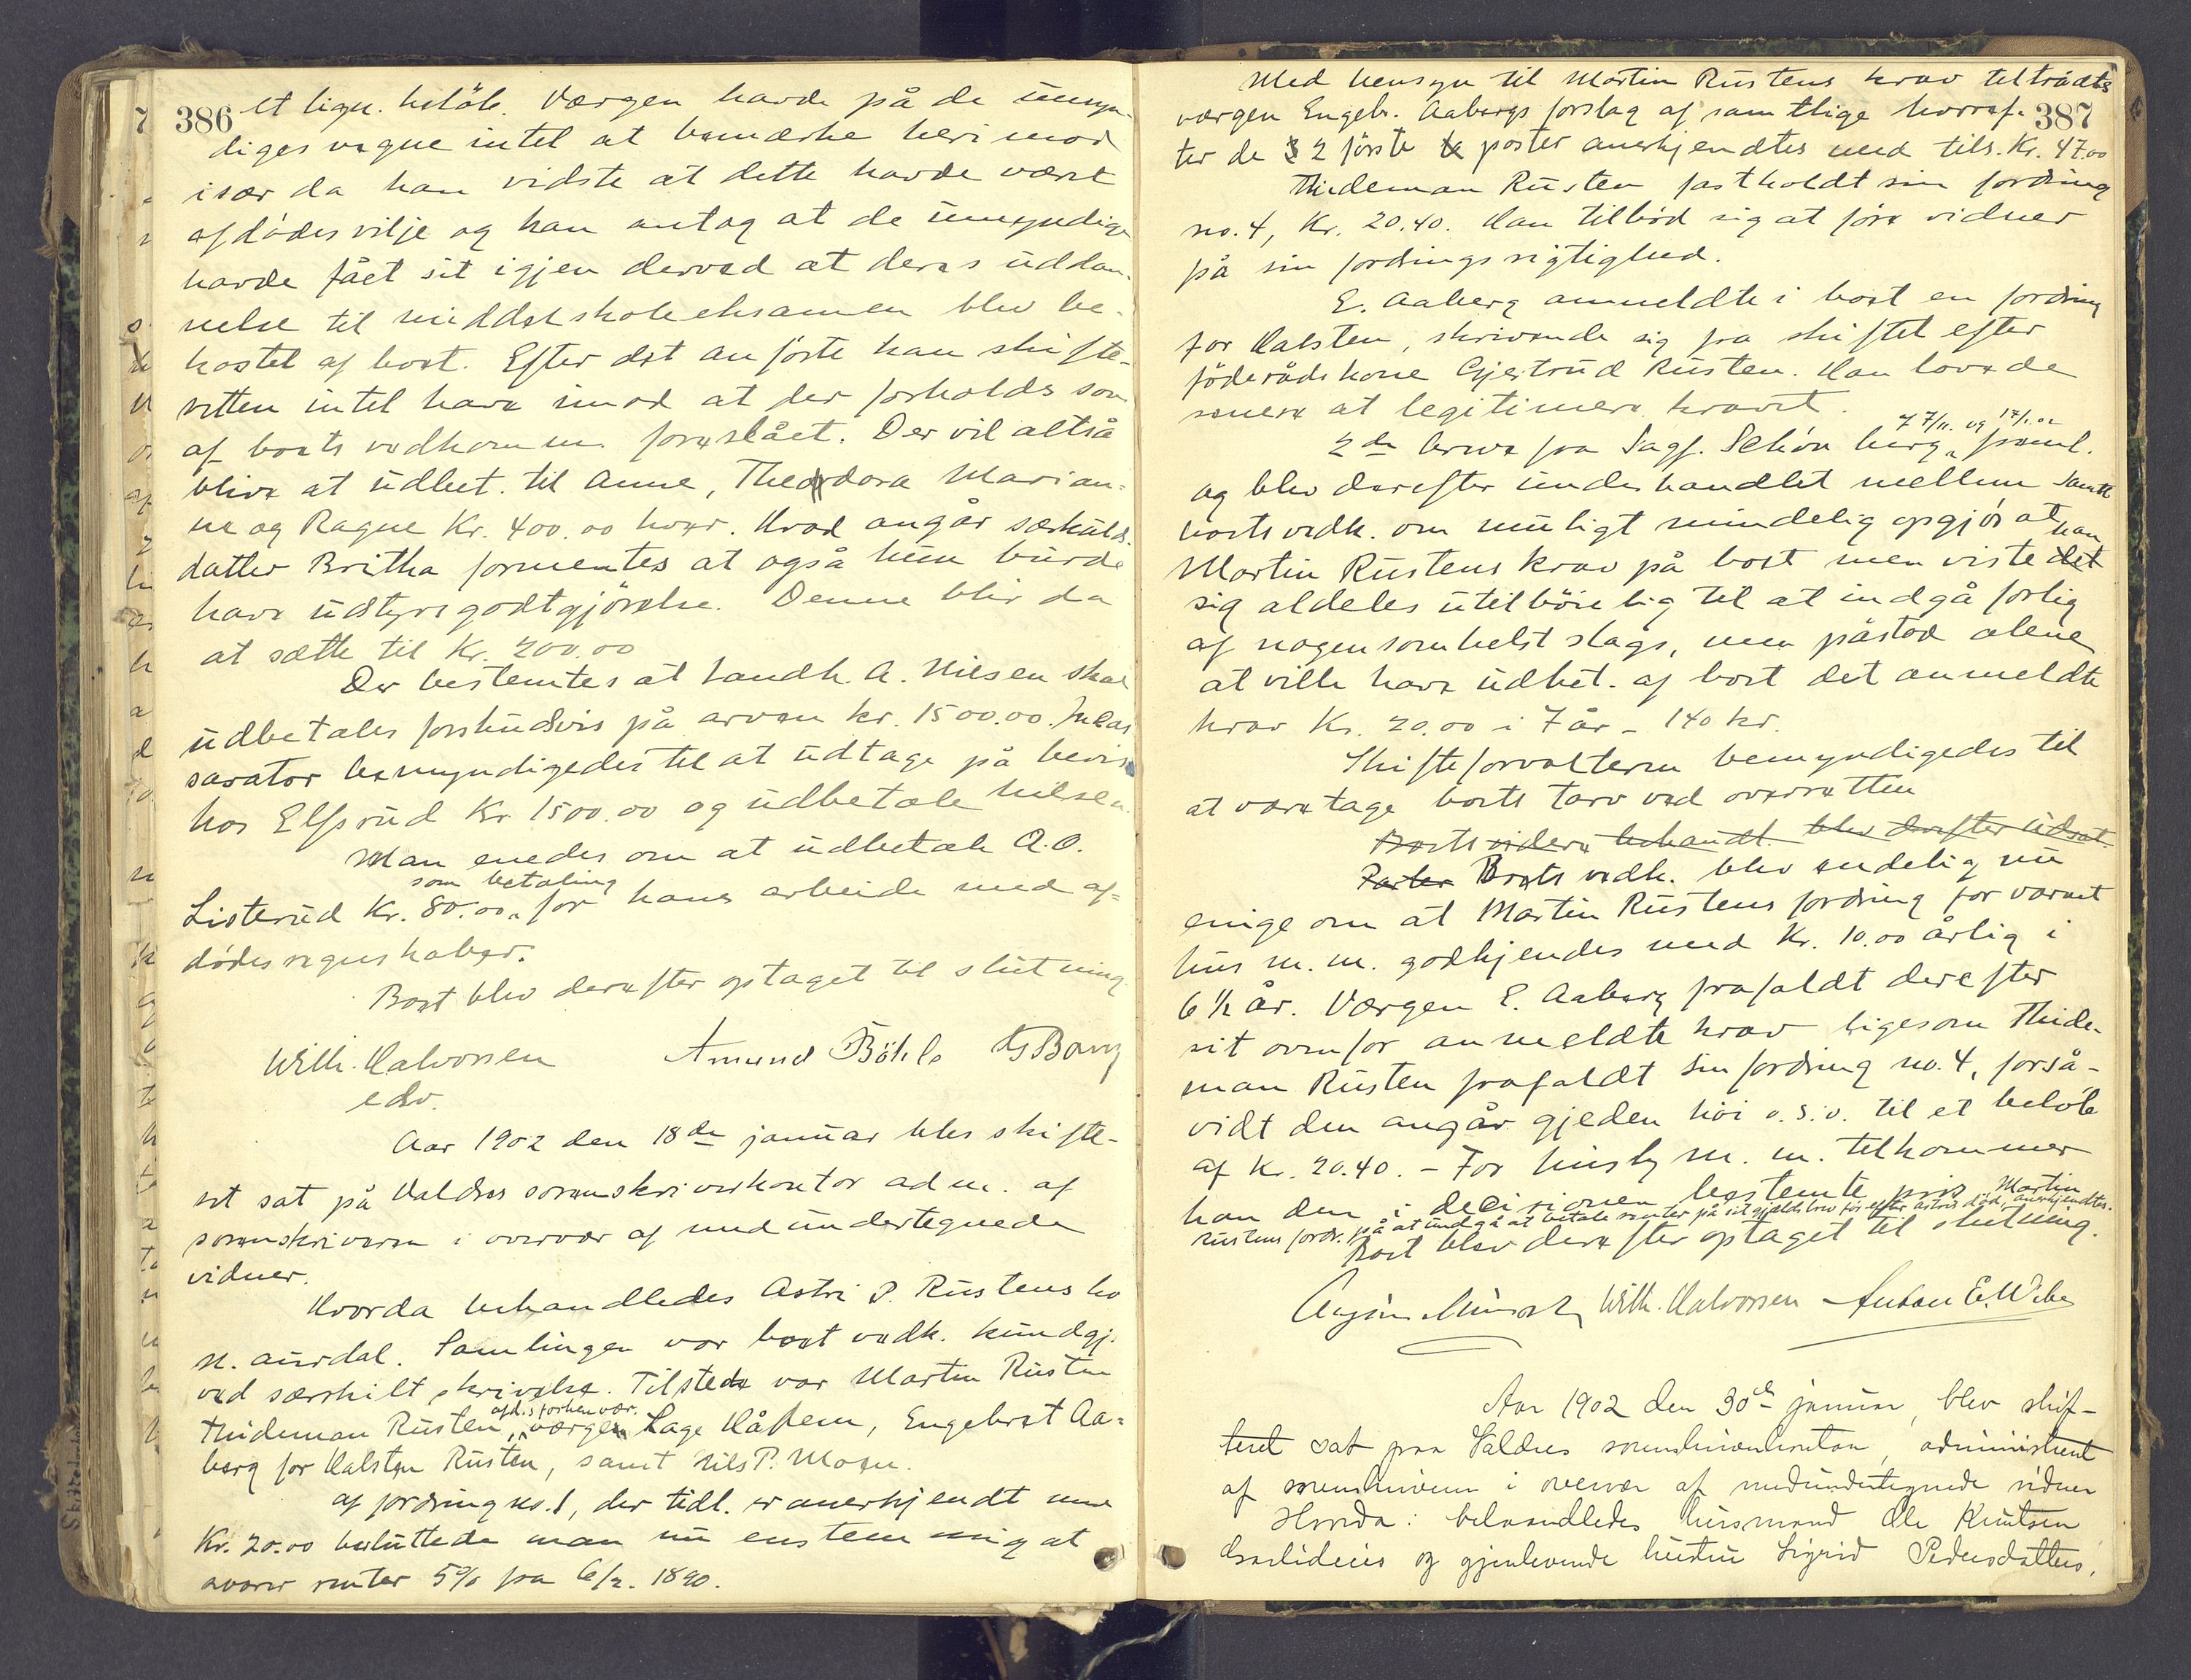 386
et lign. beløb. Værgen havde på de umyn-
diges vegne intet at bemærke herimod
især da han vidste at dette havde været
afdødes vilje og han antog at de umyndige
havde fået sit igjen derved at deres uddan-
nelse til middelskoleeksamen blev be-
kostet af boet. Efter det anførte han skifte-
retten intet have imod at der forholdes som
af boets vedkomm. foreslået. Der vil altså
blive at udbet. til Anne, Theodora Marian-
ne og Ragne Kr. 400.00 hver. Hvad angår særkulds-
datter Britha formentes at også hun burde
have udstyrsgodtgjørelse. Denne blir da
at sætte til Kr. 200.00
Der bestemtes at landh. A. Nilsen skal
udbetales forskudsvis på arven kr. 1500.00. Incas
savator bemyndigedes til at udtage på bevis
hos Elsrud Kr 1500.00 og udbetale Nilsen.
Man enedes om at udbetale A.O.
som betaling
Listerud Kr. 80.00 for hans arbeide med af-
dødes regnskaber.
Boet blev derefter optaget til slutning
Wilh. Halvorsen Amund Bøhle
edsv.
Aar 1902 den 18de januar blev skifte-
ret sat på Valdres sorenskriverkontor adm. af
sorenskriveren i overvær af medundertegnede
vidner.
Hvorda behandledes Astri P. Rustens bo
N. Aurdal. Samlingen var boet vedk. kundgj.
ved særskilt skrivelse. Tilstede var Martin Rusten
afd.s forhenvær.
Thideman Rusten, værge Lage Håfem, Engebret Aa-
berg for Halsten Rusten, samt Nils P. Moen.
Af fordring no. 1, der tidl. er anerkjendt med
Kr. 20.00 besluttede man nu enstemmig at
svare renter 5% fra 6/2. 1890.
387
Med hensyn til Martin Rustens krav tiltrådtes
værgen Engebr. Aabergs forslag af samtlige hvoref-
ter de 2 første poster anerkjendtes med tils. Kr. 47.00
Thideman Rusten fastholdt sin fordring
no. 4, Kr. 20.40. Han tilbød sig at føre vidner
på sin fordrings rigtighed.
E. Aaberg anmeldte i boet en fordring
for Halsten, skrivende sig fra skiftet efter
føderådskone Gjertrud Rusten. Han lovede
senere at legitimere kravet.
2de breve fra Sagf. Schøn berg freml.
og blev derefter underhandlet mellem samtl
boets vedk. om muligt mindelig opgjør at
Martin Rustens krav på boet men viste han
sig aldeles utilbøielig til at indgå forlig
af nogensomhelst slags, men påstod alene
at ville have udbet. af boet det anmeldte
krav Kr. 20.00 i 7 år - 140 kr.
Skifteforvalteren bemyndigedes til
at varetage boets tarv ved overretten
Boets videre behandl. blev derefter udsat.
Parter Boets vedk. blev endelig nu
enige om at Martin Rustens fordring for varmt
hus m.m. godkjendes med Kr. 10.00 årlig i
6 1/2 år. Værgen E. Aaberg frafaldt derefter
sit ovenfor anmeldte krav ligesom Thide-
man Rusten frafaldt sin fordring no. 4, forså-
vidt den angår gjeden høi o.s.v. til et beløb
af Kr. 20.40. - For husly m.m. tilkommer
han den i decisionen bestemte pris Martin
Rustens fordr. på at undgå at betale renter på sit gjeldsbrev før efter Astris død, anerkjendtes.
Boet blev derefter optaget til slutning.
Wilh. Halvorsen Anton E. Wibe
Aar 1902 den 30te januar, blev skif-
teret sat paa Valdres sorenskriverkontor, administreret
af sorenskriveren i overvær af medundertegnede vidner
Hvorda: behandledes husmand Ole Knutsen
og gjenlevende hustru Sigrid Pedersdatters,